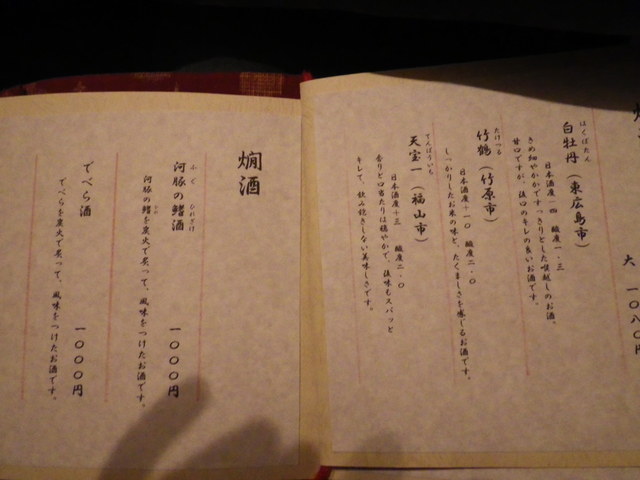 大 一〇八〇円
はくぼたん
白牡丹（東広島市）
日本酒度－四 酸度一・三
きめ細やかかですっきりとした喉越しのお酒。
甘口ですが、後口のキレの良いお酒です。
たけつる
竹鶴（竹原市）
日本酒度＋一〇 酸度二・〇
しっかりしたお米の味と、たくましさを感じるお酒です。
てんぽういち
天宝一（福山市）
日本酒度＋三 酸度二・〇
香りと口当たりは穏やかで、後味もスパッと
キレて、飲み飽きしない美味しさです。
燗酒
ふぐ ひれざけ
河豚の鰭酒 一〇〇〇円
河豚の鰭を炭火で炙って、風味をつけたお酒です。
でべら酒 一〇〇〇円
でべらを炭火で炙って、風味をつけたお酒です。